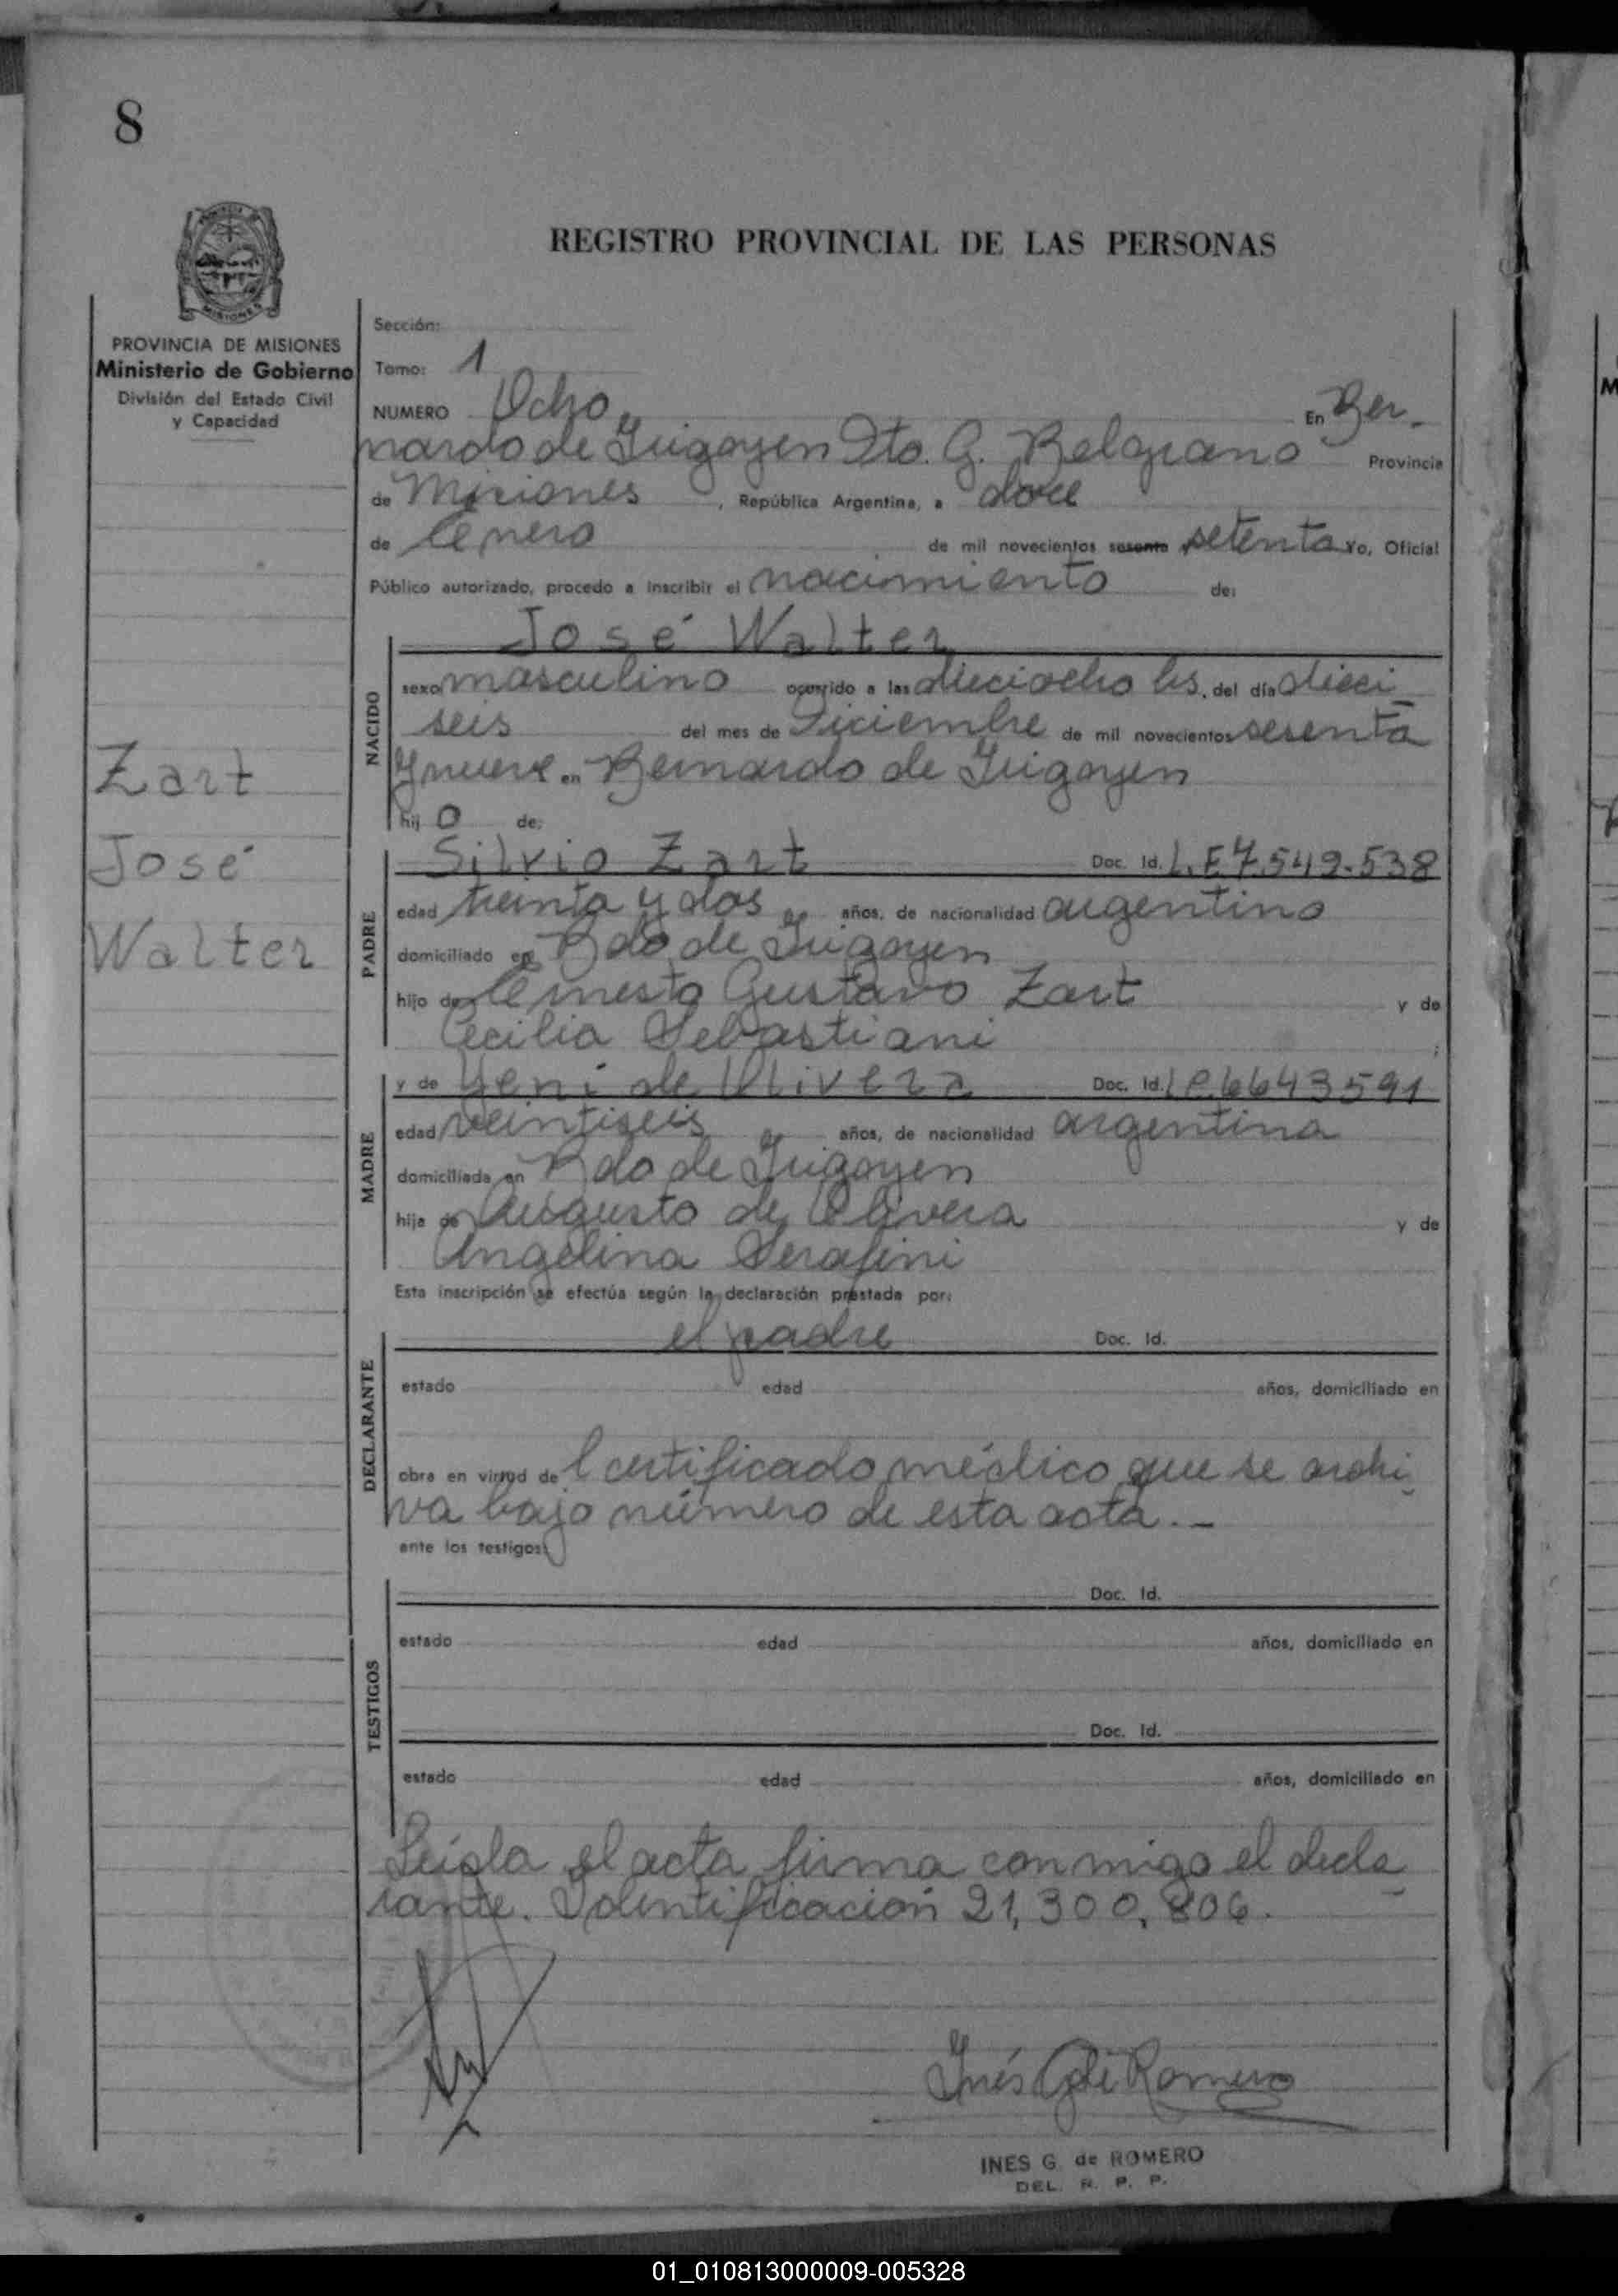 8
REGISTRO PROVINCIAL DE LAS PERSONAS
MISIONES
PROVINCIA DE MISIONES
Ministerio de Gobierno
División del Estado Civil
y Capacidad
Zart
José
Walter
Sección:
Tomo: 1
NUMERO Ocho. En Ber-
nardo de Irigoyen Dto. G. Belgrano Provincia
de Misiones, República Argentina, a doce
de Enero de mil novecientos sesenta setenta Yo, Oficial
Público autorizado, procedo a inscribir el nacimiento de:
NACIDO
José Walter
sexo masculino ocurrido a las dieciocho hs. del día dieci-
seis del mes de Diciembre de mil novecientos sesenta
y nueve en Bernardo de Irigoyen
hijo de:
PADRE
Silvio Zart Doc. Id. L.E 7.549.538
edad treinta y dos años, de nacionalidad argentino
domiciliado en Bdo de Irigoyen
hijo de Ernesto Gustavo Zart y de
Cecilia Sebastiani ;
MADRE
y de Yeni de Olivera Doc. Id. L.C. 6643591
edad veintiseis años, de nacionalidad argentina
domiciliada en Bdo de Irigoyen
hija de Augusto de Olivera y de
Angelina Serafini
Esta inscripción se efectúa según la declaración prestada por:
DECLARANTE
el padre Doc. Id.
estado edad años, domiciliado en
obra en virtud del certificado médico que se archi-
va bajo número de esta acta. -
ante los testigos:
TESTIGOS
Doc. Id.
estado edad años, domiciliado en
Doc. Id.
estado edad años, domiciliado en
Leída el acta firma conmigo el decla-
rante. Identificación 21,300,806.
Inés G de Romero
INES G. de ROMERO
DEL. R. P. P.
01_010813000009-005328